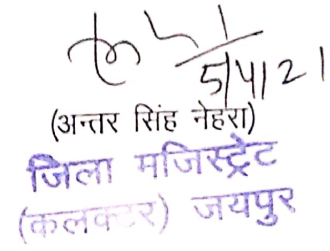 5/4/21
(अन्तर सिंह नेहरा)
जिला मजिस्ट्रेट
(कलक्टर) जयपुर